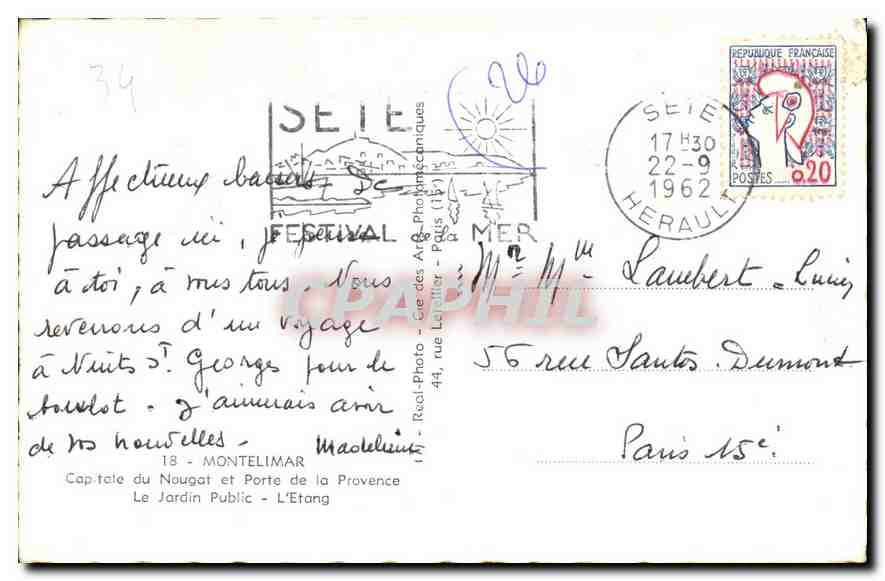 34
26
SETE
FESTIVAL de la MER
SETE
17 H 30
22-9
1962
HERAULT
REPUBLIQUE FRANÇAISE
POSTES
0,20
Affectueux baisers De
passage ici, je pense
à toi, à vous tous. Nous
revenons d'un voyage
à Nuits St Georges pour le
boulot. J'aimerais avoir
de vos nouvelles.
Madeleine
18 - MONTELIMAR
Capitale du Nougat et Porte de la Provence
Le Jardin Public - L'Etang
Real-Photo - Cie des Arts Photomécaniques
44, rue Letellier - Paris (15e)
Mr Mme Lambert-Lucien
56 rue Santos-Dumont
Paris 15e
CPAPHIL